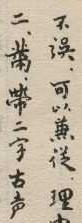 不误,可以兼從,理
二、蔕、帶二字古声